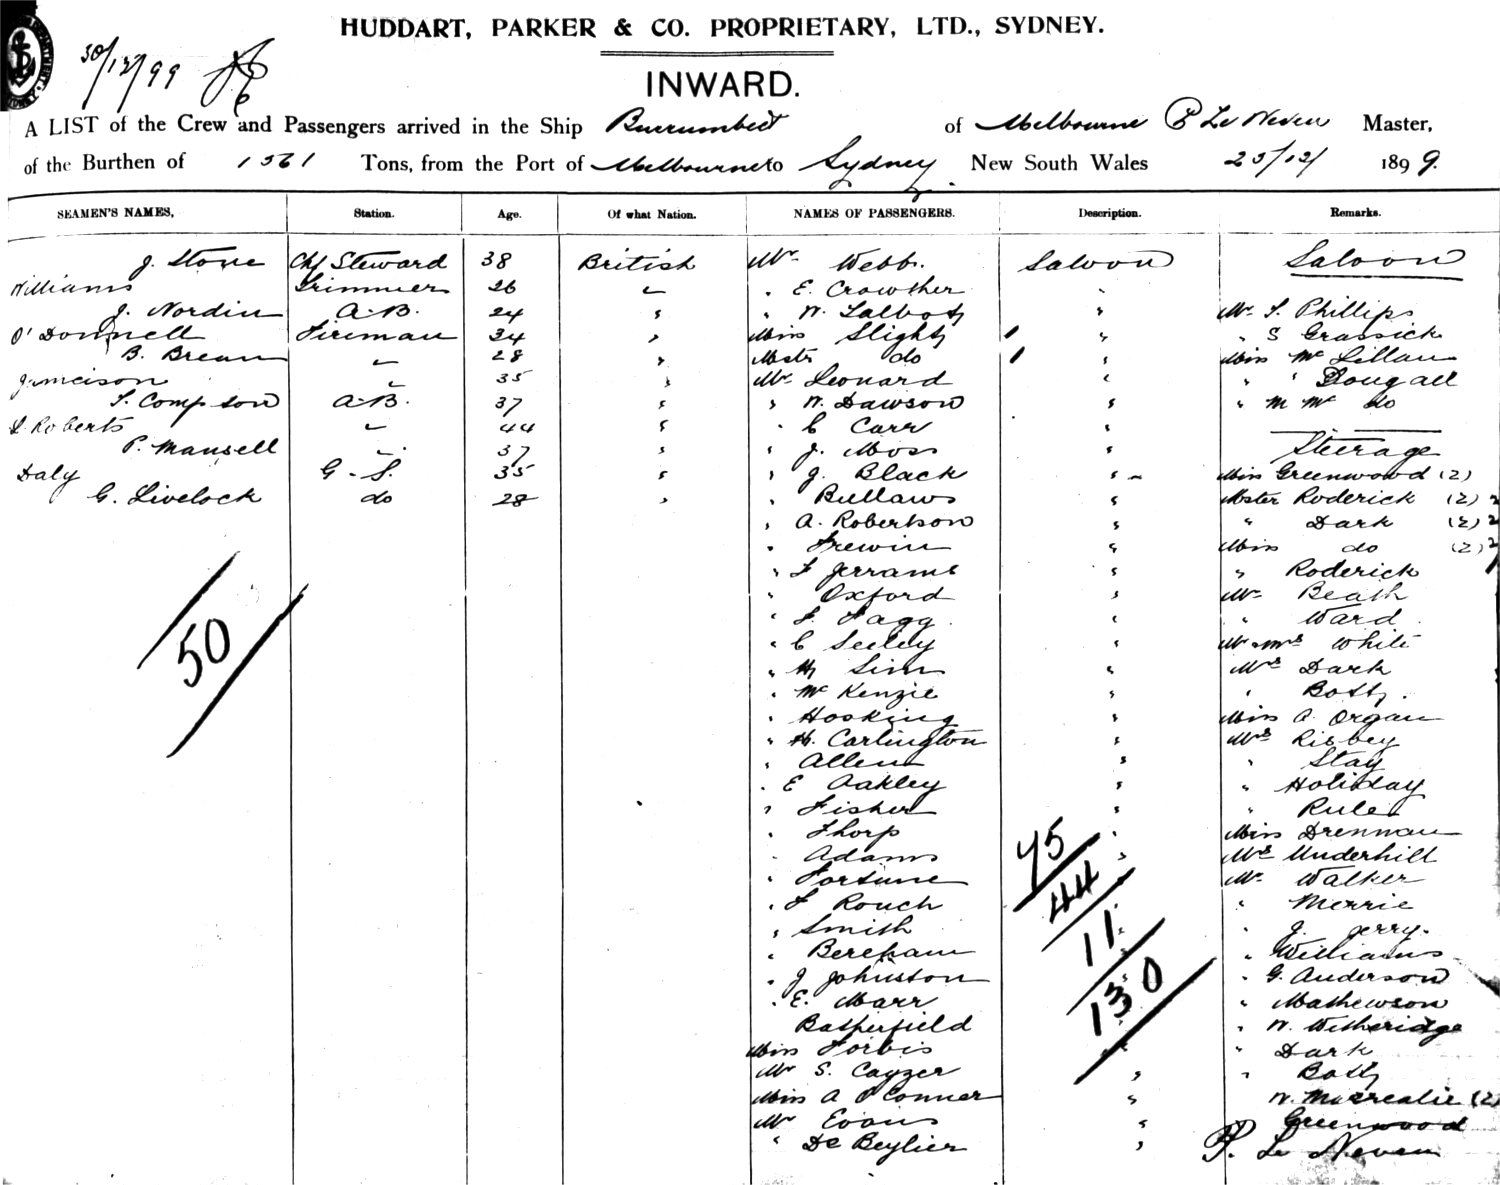 HUDDART, PARKER & CO. PROPRIETARY, LTD., SYDNEY.
30/12/99
INWARD.
A LIST of the Crew and Passengers arrived in the Ship Burrumbeet of Melbourne P Le Neveu Master,
of the Burthen of 1561 Tons, from the Port of Melbourne to Sydney New South Wales /12/ 1899.
SEAMEN'S NAMES, Station. Age. Of what Nation. NAMES OF PASSENGERS. Description. Remarks.
J. Stone Chf Steward 38 British Mr Webb. Saloon Saloon
Williams Trimmer 26 " " E. Crowther "
J. Nordin A.B. 24 " " W. Talbot " Mr. T. Phillips
O'Donnell Fireman 34 " Miss Slight 1 " " S Grassick
B. Brean " 28 " Mstr do 1 " Miss Mc Lillan
Jameison " 35 " Mr Leonard " " " Dougall
T. Compson A.B. 37 " " W. Dawson " " M Mc do
Roberts " 44 " " C Carr "
P. Mansell " 37 " " J. Moss " Steerage
Daly G.S. 35 " " J. Black " Miss Greenwood (2)
G. Livelock do 28 " " Bullaws " Mster Roderick (2) 2
" A. Robertson " " Dark (2) 2
" Frewin " Miss do (2) 2
" F Jerrams " " Roderick
" Oxford " Mr Beath
50 " F. Fagg. " " Ward.
" C Seeley " Mr & Mrs White
" Hy Sim " Mrs Dark
" Mc Kenzie " " Bott
" Hosking " Miss A. Organ
" H. Carlington " Mrs Risbey
" Allen " " Stay
" E Oakley " " Holiday
" Fisher " " Rule
" Thorp 75 " Miss Drennan
" Adams " Mrs Underhill
" Fortune 44 Mr Walker
" F Rouch " Merrie
" Smith 11 " J. Jerry.
" Bereham " Williams
" J Johnston 130 " G. Anderson
" E. Marr " Mathewson
Batherfield " W. Witheridge
Miss Forbis " Dark
Mr S. Cayzer " " Bott
Miss A O'Conner " W. (2)
Mr Evans " Greenwood
" De Beylier " P. Le Neveu